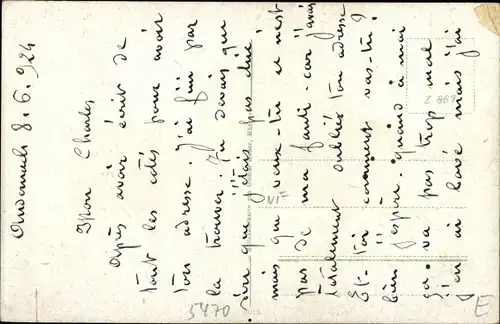 Andernach 8.6.924
Mon Charles
Après avoir écrit de
tout les côtés pour avoir
ton adresse. J'ai fini par
la trouver. Tu devais
dire que j'étais pas chic
mais que veux-tu ce n'est
pas de ma faute. car j'avais
totalement oublié ton adresse
Et toi comment vas-tu?
bien j'espère. quand à moi
ça va pas trop mal
j'en ai bavé mais j'ai
Z 869
5470
E